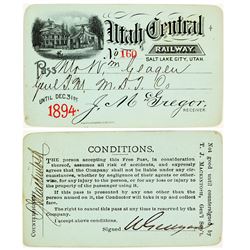 Utah Central
RAILWAY.
SALT LAKE CITY, UTAH.
No 160
Pass Mr Wm Geagen
UNTIL DEC. 31ST
1894.
J. McGregor
RECEIVER.
CONDITIONS.
THE person accepting this Free Pass, in consideration
thereof, assumes all risk of accidents, and expressly
agrees that the Company shall not be liable under any cir-
cumstances, whether by negligence of their agents or other-
wise, for any injury to the person, or for any loss or injury to
the property of the passenger using it.
If this pass is presented by any one other than the
person named on it, the Conductor will take it up and collect
fare.
The Company may cancel this pass at any time it is reserved
I accept above conditions.
Signed
COUNTERSIGNED
Not good until countersigned by